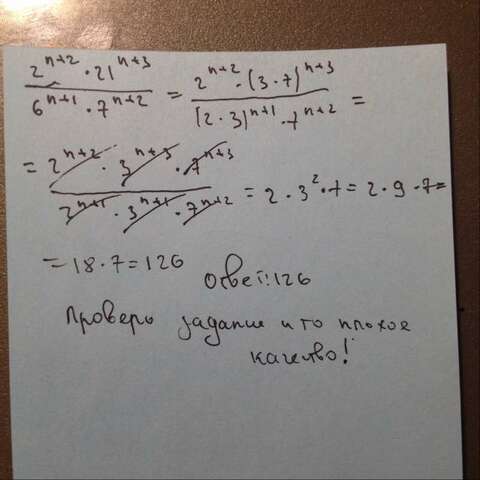 2^{n+2} · 21^{n+3} / 6^{n+1} · 7^{n+2} = 2^{n+2} · (3 · 7)^{n+3} / (2 · 3)^{n+1} · 7^{n+2} =
= 2^{n+2} · 3^{n+3} · 7^{n+3} / 2^{n+1} · 3^{n+1} · 7^{n+2} = 2 · 3^2 · 7 = 2 · 9 · 7 =
= 18 · 7 = 126
Ответ: 126
Проверь задание и то плохое
качество!